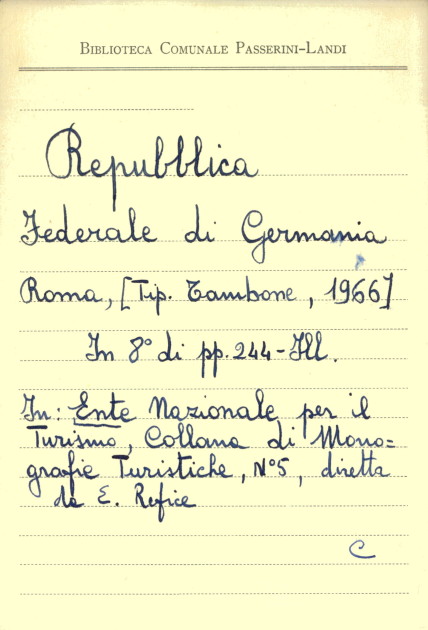 BIBLIOTECA COMUNALE PASSERINI-LANDI
Repubblica
Federale di Germania
Roma, [Tip. Tambone, 1966]
In 8° di pp. 244-Ill.
In: Ente Nazionale per il
Turismo, Collana di Mono=
grafie Turistiche, N°5, diretta
da E. Refice
C